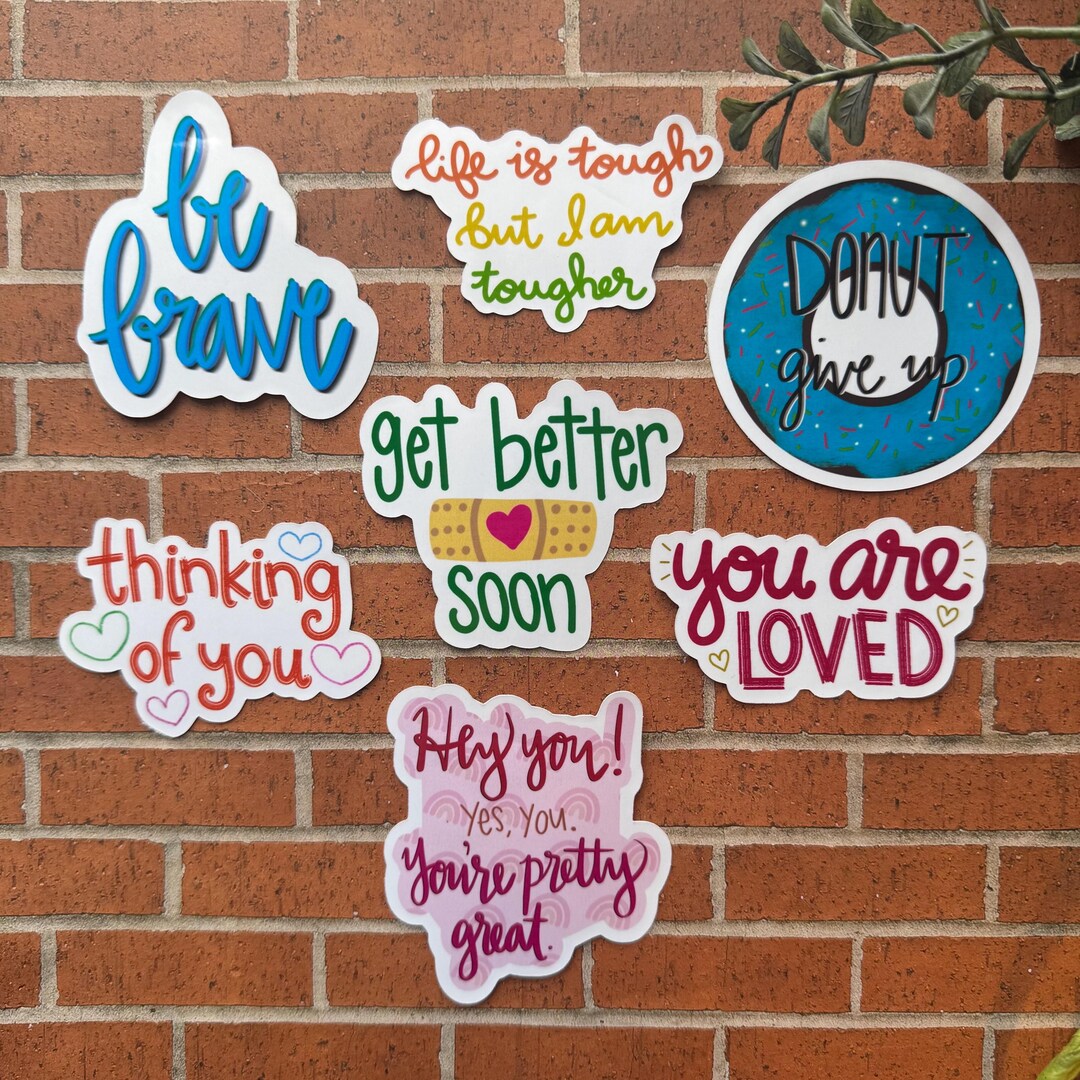 be
brave
life is tough
but I am
tougher
DONUT
give up
get better
soon
thinking
of you
you are
LOVED
Hey you!
Yes, You.
You're pretty
great.